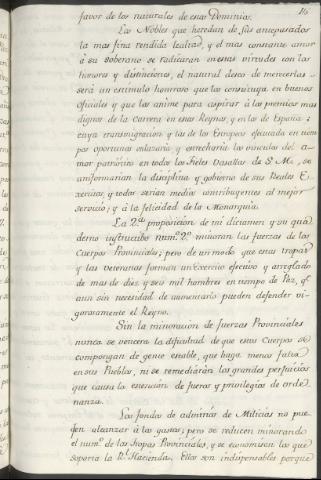 16
favor de los naturales de esos Dominios.
Los Nobles que heredan de sus antepasados
la mas fina rendida lealtad, y el mas constante amor
à su soberano se radicarán en estas virtudes con los
honores y distinciones, el natural deseo de merecerlas
será un estimulo honroso que los constituya en buenos
oficiales y que los anime para aspirar à los premios mas
dignos de la Carrera en esos Reynos, y en los de España:
cuya transmigracion y la de los Europeos efectuada en tiem
po oportuno enlazaria y estrecharia los vinculos del a-
mor patriótico en todos los Fieles Vasallos de S. M., se
uniformarian la disciplina y govierno de sus Reales E-
xercitos, y todos serian medios contribuyentes al mejor
servicio, y à la felicidad de la Monarquia.
La 2.ª proposicion de mi dictamen y su qua
derno instructibo num.º 2.º minoran las fuerzas de los
Cuerpos Provinciales; pero de un modo que estas tropas
y las veteranas forman un exercito efectivo y arreglado
de mas de diez y seis mil hombres en tiempo de Paz, qe.
aun sin necesidad de aumentarlo pueden defender vi-
gorosamente el Reyno.
Sin la minoracion de fuerzas Provinciales
nunca se vencerá la dificultad de que estos Cuerpos se
compongan de gente estable, que haga menos falta
en sus Pueblos, ni se remediarán los grandes perjuicios
que causa la esencion de fueros y privilegios de orde
nanza.
Los fondos de arbitrios de Milicias no pue-
den alcanzar à los gastos; pero se reducen minorando
el num.º de las tropas Provinciales, y se economisan los que
soporta la R.l Hacienda. Ellos son indispensables porque